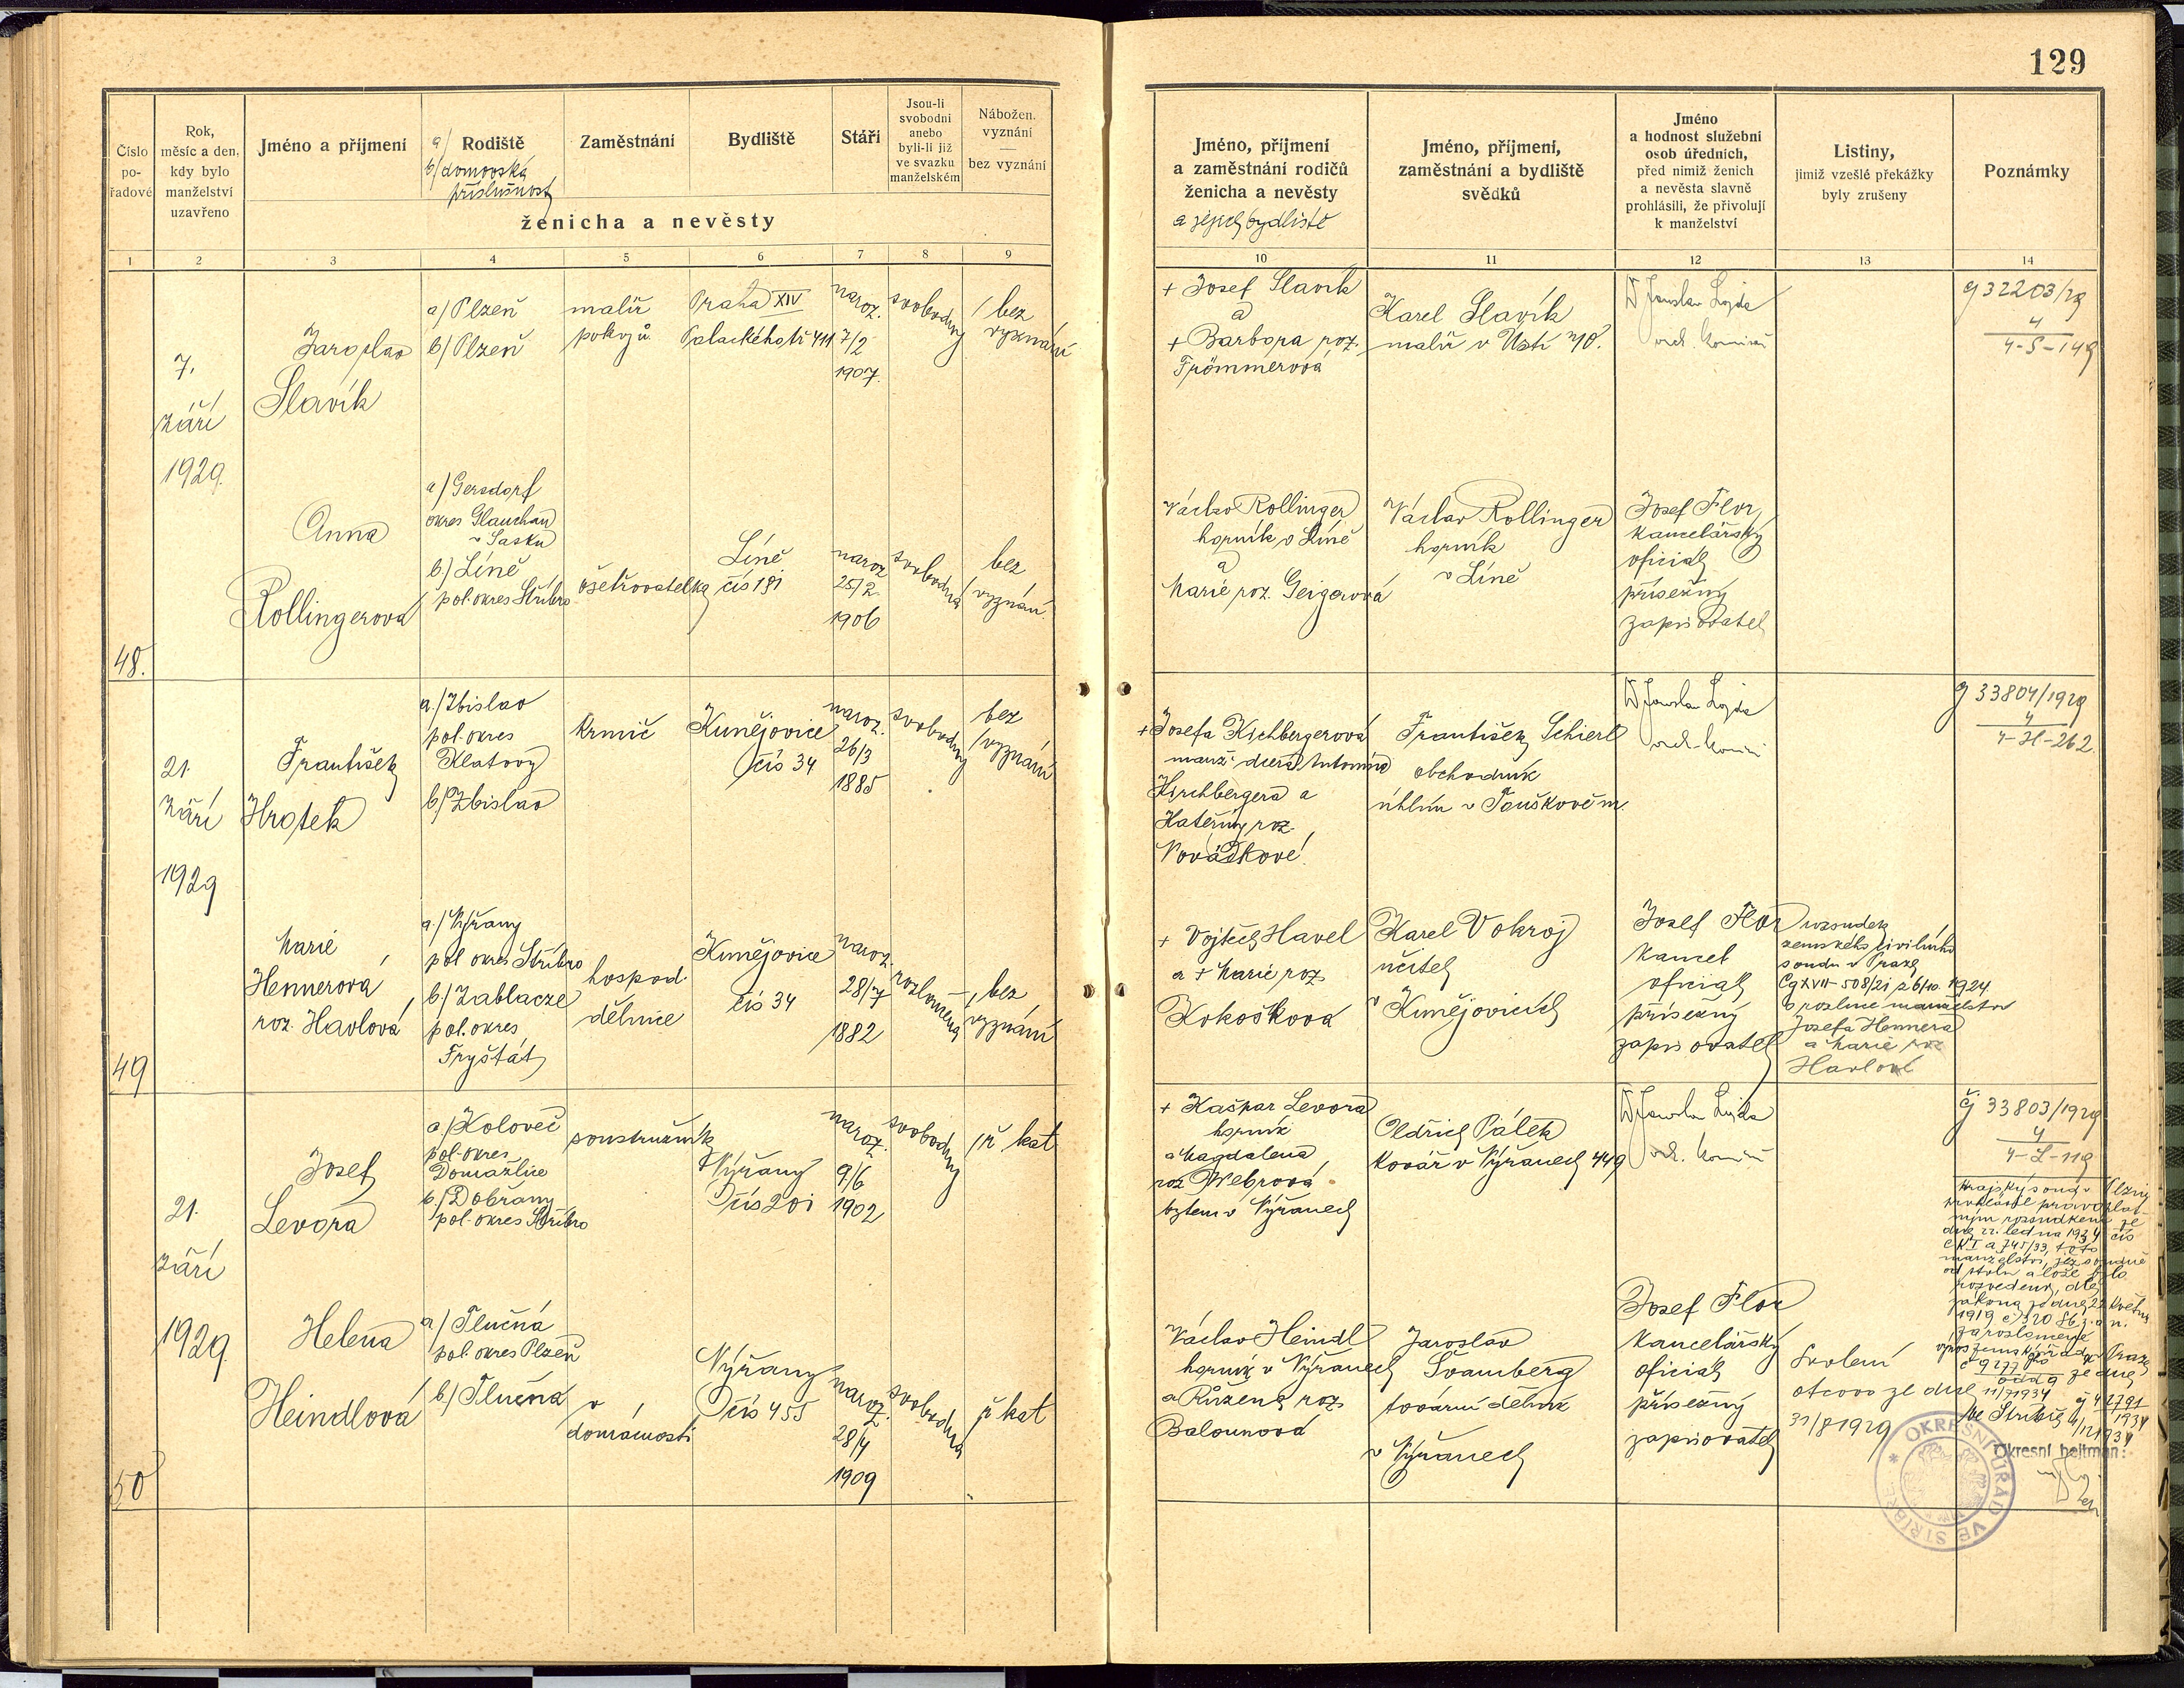 129
Číslo pořadové
Rok, měsíc a den, kdy bylo manželství uzavřeno
Jméno a příjmení
a/ Rodiště
b/ domovská příslušnost
Zaměstnání
Bydliště
Stáří
Jsou-li svobodni anebo byli-li již ve svazku manželském
Nábožen. vyznání — bez vyznání
ženicha a nevěsty
Jméno, příjmení a zaměstnání rodičů ženicha a nevěsty
a jejich bydliště
Jméno, příjmení, zaměstnání a bydliště svědků
Jméno a hodnost služební osob úředních, před nimiž ženich a nevěsta slavně prohlásili, že přivolují k manželství
Listiny, jimiž vzešlé překážky byly zrušeny
Poznámky
1 2 3 4 5 6 7 8 9 10 11 12 13 14
48.
7.
září
1929.
Jaroslav
Slavík
a/ Plzeň
b/ Plzeň
malíř
pokojů
Praha XIV
Palackého tř 411
naroz.
7/2
1907.
svobodný
bez
vyznání
+ Josef Slavík
a
+ Barbora roz.
Frömmerová
Karel Slavík
malíř v Ústí 40.
Dr Jaroslav Lojda
čj 32203/29
4
4-S-149
Anna
Rollingerová
a/ Gersdorf
okres Glauchau
v Sasku
b/ Líně
pol. okres Stříbro
ošetřovatelka
Líně
čís 191
naroz
25/2
1906
svobodná
bez
vyznání.
Václav Rollinger
horník v Líně
a
Marie roz. Geigerová
Václav Rollinger
horník
v Líně
Josef Flor
kancelářský
oficiál
přísežný
zapisovatel
49
21.
září
1929
František
Hrotek
a./ Zbislav
pol. okres
Klatovy
b/ Zbislav
krmič
Kunějovice
čís 34
naroz.
26/3
1885
svobodný
bez
vyznání
+ Josefa Kirchbergerová
manž. dcera Antonína
Kirchbergera a
Kateřiny roz.
František Schierl
obchodník
uhlím v Touškově m.
Dr Jaroslav Lojda
čj 33804/1929
4
4-H-262
Marie
Hennerová
roz. Havlová
a./ Nýřany
pol okres Stříbro
b/ Zablacze
pol. okres
Fryštát
hospod.
dělnice
Kunějovice
čís 34
naroz.
28/7
1882
rozloučená
bez
vyznání
+ Vojtěch Havel
a + Marie roz
Kokošková
Karel Vokroj
učitel
v Kunějovicích
Josef Flor
kancel
oficiál
přísežný
zapisovatel
rozsudek
zemského civilního
soudu v Praze
Cg XVII 508/21 z 6/10. 1924
o rozluce manželství
Josefa Hennera
a Marie roz
Havlové
50
21.
září
1929.
Josef
Levora
a/ Koloveč
pol. okres
Domažlice
b/ Dobřany
pol. okres Stříbro
soustružník
Nýřany
čís 201
naroz.
9/6
1902
svobodný
ř kat
+ Kašpar Levora
horník
a Magdalena
roz Webrová
bytem v Nýřanech
Oldřich Pálek
kovář v Nýřanech 449
Dr Jaroslav Lojda
čj 33803/1929
4
4-L-119
Krajský soud v Plzni
prohlásil pravoplat-
ným rozsudkem ze
dne 22. ledna 1934 čís
Ck I a 745/33, toto
manželství, jež soudně
od stolu a lože bylo
rozvedeno, dle
zákona ze dne 22 května
1919 č 320 Sb z. a n.
za rozloučené
Helena
Heindlová
a/ Tlučná
pol. okres Plzeň
b/ Tlučná
v
domácnosti
Nýřany
čís 455
naroz.
28/4
1909
svobodná
ř kat
Václav Heindl
horník v Nýřanech
a Růžena roz
Balounová
Jaroslav
Švamberg
tovární dělník
v Nýřanech
Josef Flor
kancelářský
oficiál
přísežný
zapisovatel
Svolení
otcovo ze dne
31/8 1929
Ve Stříbře
Okresní hejtman:
OKRESNÍ ÚŘAD VE STŘÍBŘE